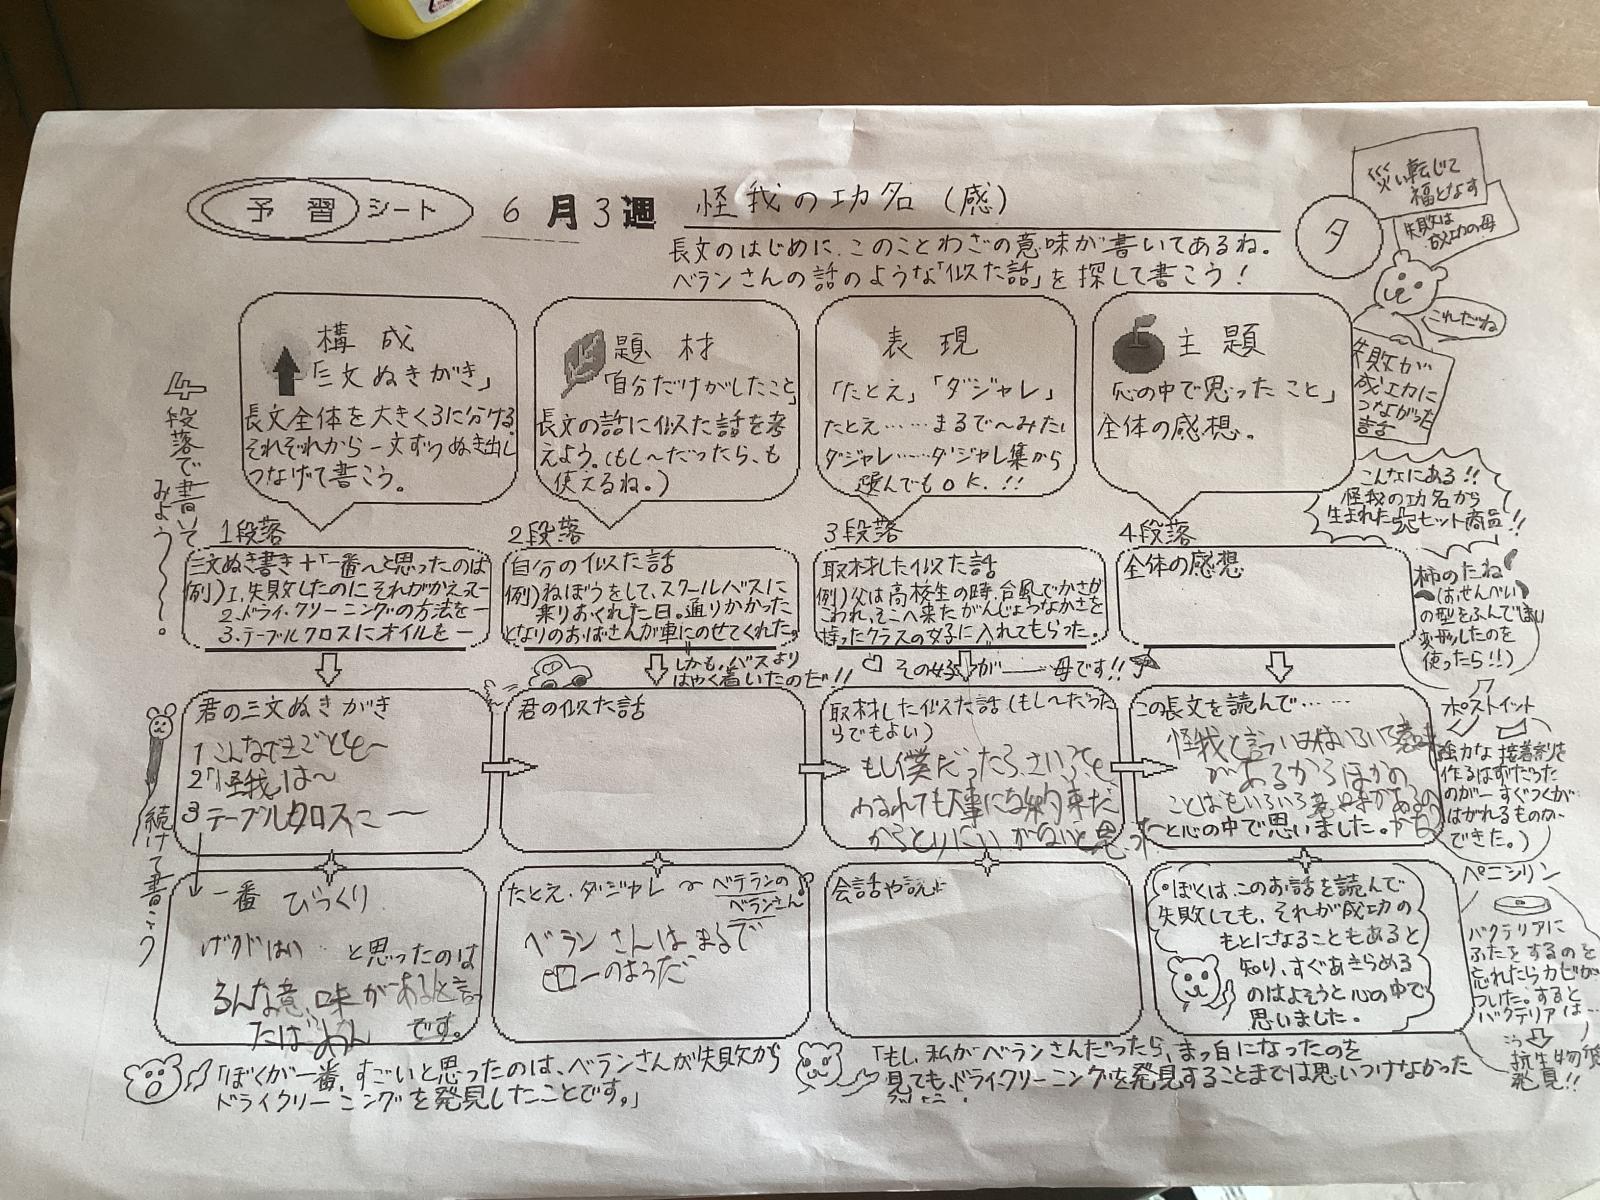 予習シート
6月3週
怪我の功名(感)
タ
長文のはじめに、このことわざの意味が書いてあるね。
ベランさんの話のような「似た話」を探して書こう!
災い転じて
福となす
失敗は
成功の母
これだね
失敗が
成功に
つながった
話
4段落で書いて
みよう〜。
構成
「三文ぬきがき」
長文全体を大きく3に分ける。
それぞれから一文ずつぬき出し
つなげて書こう。
題材
「自分だけがしたこと」
長文の話に似た話を考
えよう。(もし〜だったら、も
使えるね。)
表現
「たとえ」「ダジャレ」
たとえ……まるで〜みたい
ダジャレ……ダジャレ集から
選んでもOK.!!
主題
「心の中で思ったこと」
全体の感想。
こんなにある!!
怪我の功名から
生まれた大ヒット商品!!
1段落
三文ぬき書き+「一番〜と思ったのは
例)1.失敗したのにそれがかえって—
2.ドライ・クリーニングの方法を—
3.テーブルクロスにオイルを—
2段落
自分の似た話
例)ねぼうをして、スクールバスに
乗りおくれた日。通りかかった
となりのおばさんが車にのせてくれた。
しかも、バスより
はやく着いたのだ!!
3段落
取材した似た話
例)父は高校生の時、台風でかさが
こわれ、そこへ来たがんじょうなかさを
持ったクラスの女子に入れてもらった。
その女子が——母です!!
4段落
全体の感想
柿のたね
(はせんべい
の型をふんで
変形したのを
使ったら!!)
君の三文ぬきがき
1 こんなできごとも〜
2「怪我」は〜
3 テーブルクロスに—
君の似た話
取材した似た話(もし〜だった
らでもよい)
もし僕だったら、さいふを
わすれても大事な約束だ
からとりにい
この長文を読んで……
怪我と言う
があるからほかの
ことばもいろいろ意味があるの
〜と心の中で思いました。
ポストイット
強力な接着剤を
作るはずだった
のが—すぐつくが
はがれるものが
できた。)
続けて書こう
一番 びっくり
と思ったのは
味があると言
です。
たとえ・ダジャレ 〜ベテランの
ベランさん
ベランさんはまるで
ーのようだ
会話や説
・ぼくは、このお話を読んで
失敗しても、それが成功の
もとになることもあると
知り、すぐあきらめる
のはよそうと心の中で
思いました。
ペニシリン
バクテリアに
ふたをするのを
忘れたらカビが
ついた。すると
バクテリアは…
こう
抗生物質
発見!!
「ぼくが一番、すごいと思ったのは、ベランさんが失敗から
ドライクリーニングを発見したことです。」
「もし、私がベランさんだったら、まっ白になったのを
見ても、ドライクリーニングを発見することまでは思いつけなかった